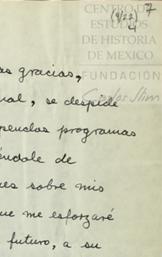 CENTRO DE
ESTUDIOS
DE HISTORIA
DE MEXICO
FUNDACIÓN
Carlos Slim
7
4
as gracias,
se despide
programas
éndole de
es sobre mis
ue me esforzaré
futuro, a su